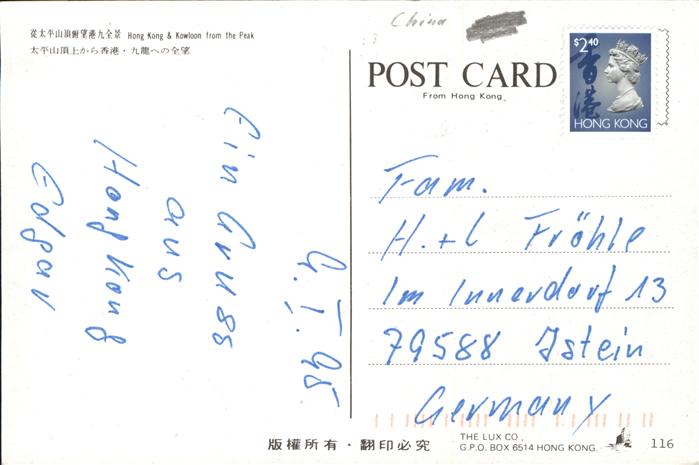 從太平山頂俯望港九全景 Hong Kong & Kowloon from the Peak
太平山頂上から香港・九龍への全望
China
POST CARD
From Hong Kong.
$2.40
香港
HONG KONG
Ein Gruss
aus
Hong Kong
Edgar
Fam.
H. + L Fröhle
Im Innerdorf 13
79588 Istein
Germany
版權所有・翻印必究
THE LUX CO.,
G.P.O. BOX 6514 HONG KONG.
116